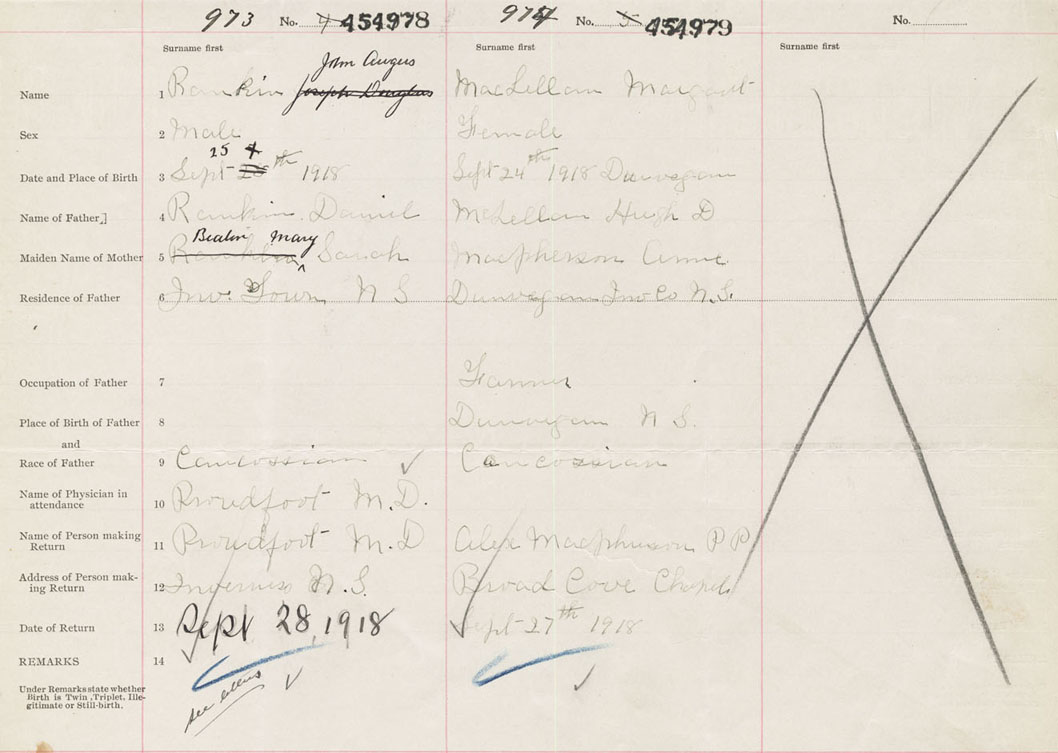 973 No. 4 454978
974 No. 5 454979
No.
Surname first Surname first Surname first
John Angus
Name 1 Rankin Joseph Douglas MacLellan Margaret
Sex 2 Male Female
25
Date and Place of Birth 3 Sept th 1918 Sept 24th 1918 Dunvegan
Name of Father] 4 Rankin Daniel McLellan Hugh D
Beaton Mary
Maiden Name of Mother 5 Sarah Macpherson Annie
Residence of Father 6 Inv. Town N S Dunvegan Inv Co N.S.
Occupation of Father 7 Farmer
Place of Birth of Father 8 Dunvegan N S.
and
Race of Father 9 Caucossian Caucossian
Name of Physician in
attendance 10 Proudfoot M.D.
Name of Person making
Return 11 Proudfoot M.D Alex Macpherson P P
Address of Person mak-
ing Return 12 Inverness N.S. Broad Cove Chapel
Date of Return 13 Sept 28, 1918 Sept 27th 1918
REMARKS 14
see letters
Under Remarks state whether
Birth is Twin, Triplet, Ille-
gitimate or Still-birth.